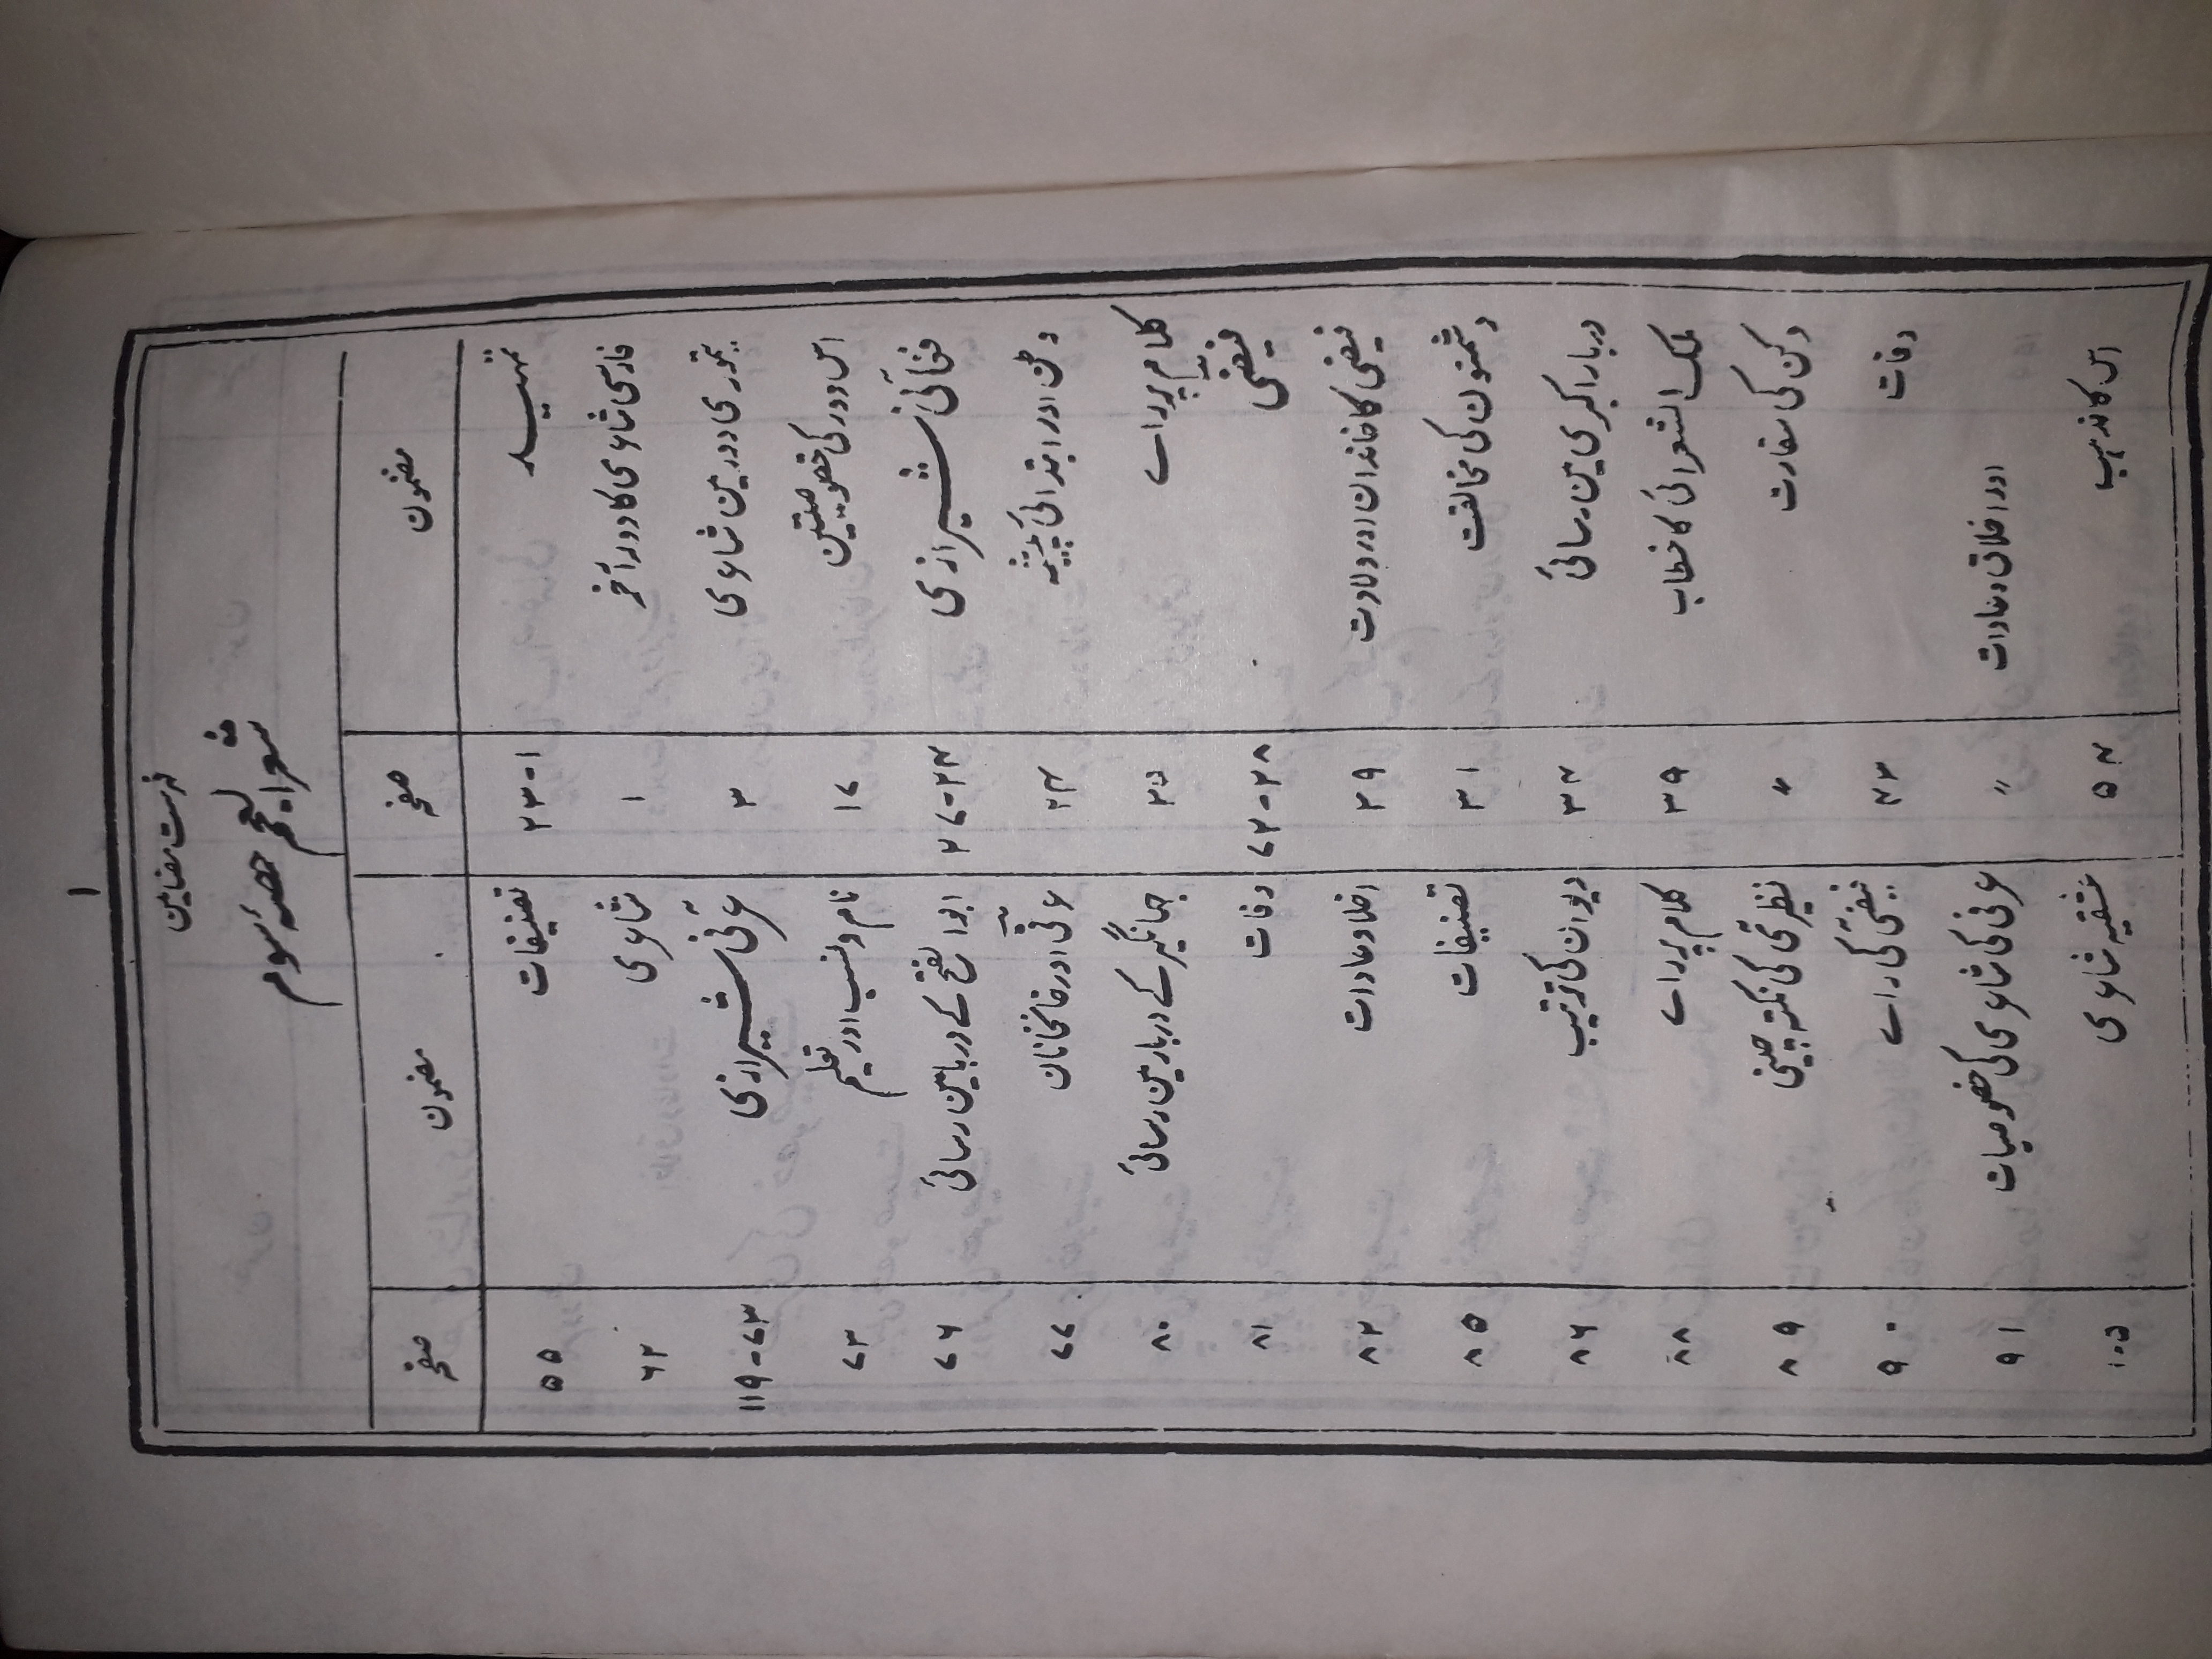 ۱
فہرست مضامین
شعر العجم حصۂ سوم
مضمون صفحہ مضمون صفحہ
تمہید ۱-۲۳ تصنیفات ۵۵
فارسی شاعری کا دور آخر ۱ شاعری ۶۲
تیموری دور مین شاعری ۳ عرفی شیرازی ۷۳-۱۱۹
اس دور کی خصوصیتین ۱۷ نام و نسب اور تعلیم ۷۳
فغانی شیرازی ۲۴-۲۷ ابو الفتح کے دربار مین رسائی ۷۶
وطن اور ابتدائی پیشہ ۲۴ عرفی اور خانخانان ۷۷
کلام پر راے ۲۵ جہانگیر کے دربار مین رسائی ۸۰
فیضی ۲۸-۷۲ وفات ۸۱
فیضی کا خاندان اور ولادت ۲۹ اخلا و عادات ۸۲
دشمنون کی مخالفت ۳۱ تصنیفات ۸۵
دربار اکبری مین رسائی ۳۴ دیوان کی ترتیب ۸۶
ملک الشعرائی کا خطاب ۳۹ کلام پر راے ۸۸
دکن کی سفارت ״ نظیری کی نکتہ چینی ۸۹
وفات ۴۳ فیضی کی راے ۹۰
اور اخلاق و عادات ״ عرفی کی شاعری کی خصوصیات ۹۱
اس کا مذہب ۵۴ عشقیہ شاعری ۱۰۵